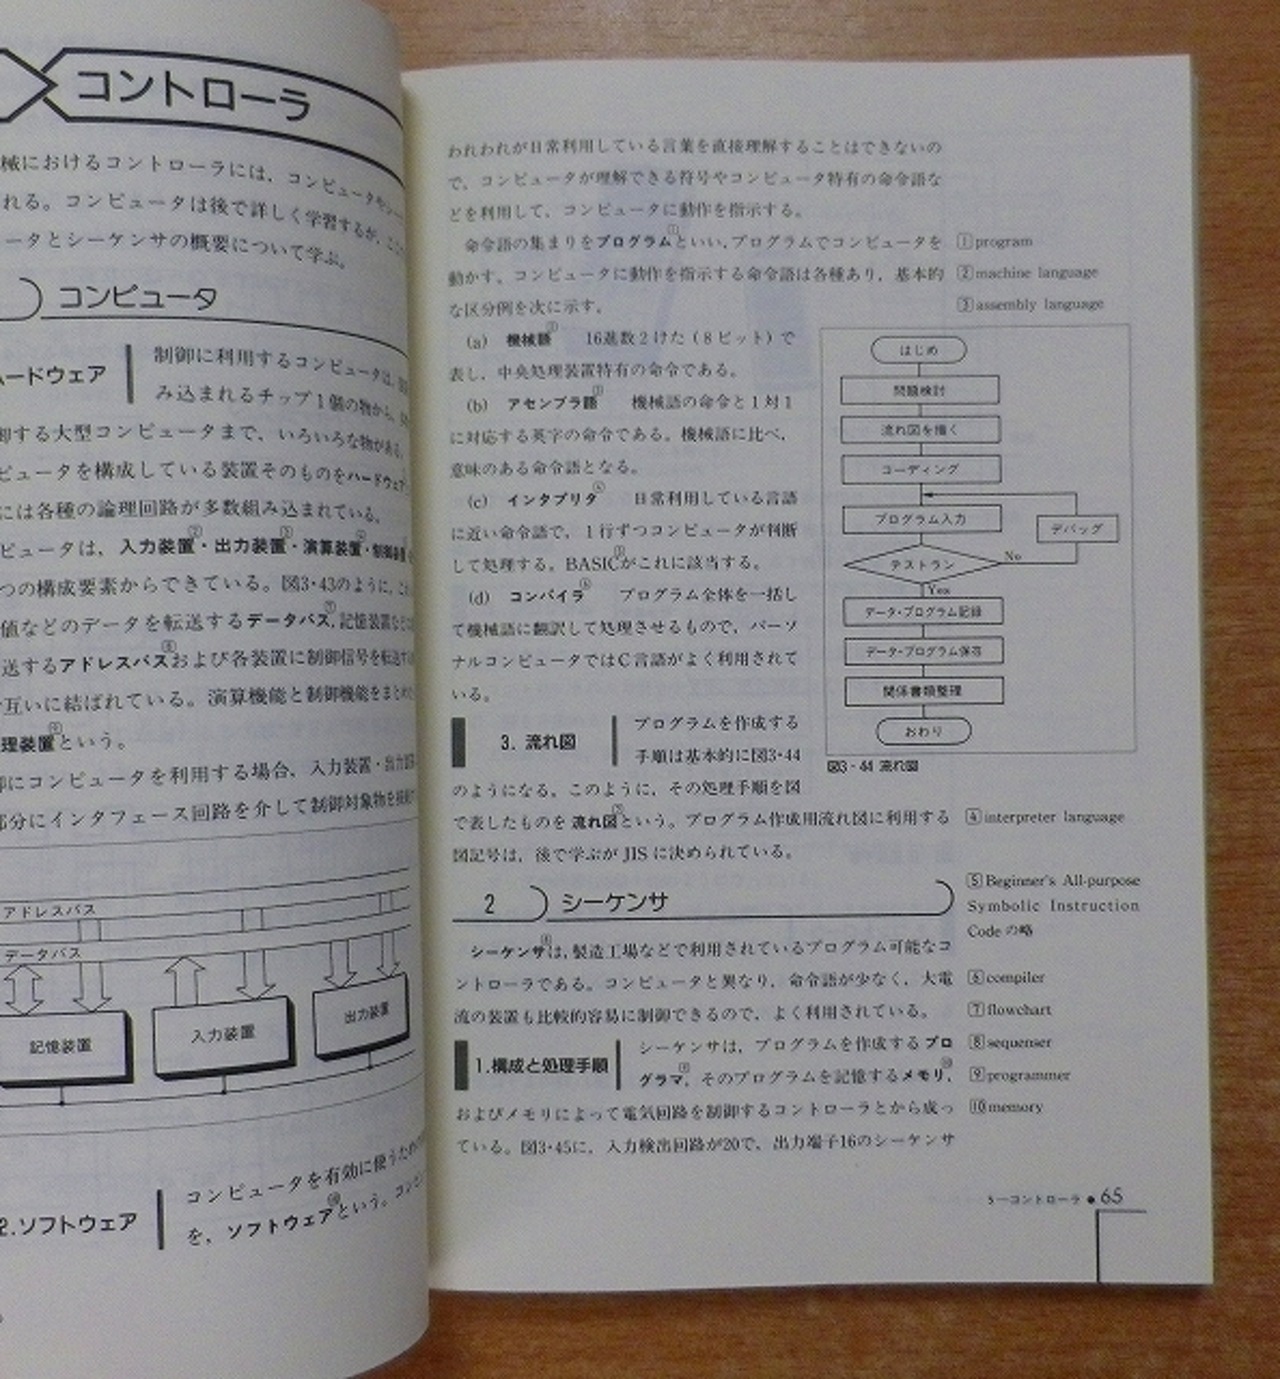 コントローラ
械におけるコントローラには、コンピュータやシー
れる。コンピュータは後で詳しく学習するが、ここ
ータとシーケンサの概要について学ぶ。
コンピュータ
ードウェア
制御に利用するコンピュータは、
み込まれるチップ1個の物から、
御する大型コンピュータまで、いろいろな物がある。
ピュータを構成している装置そのものをハードウェア
には各種の論理回路が多数組み込まれている。
ピュータは、入力装置・出力装置・演算装置・制御装置
つの構成要素からできている。図3・43のように、
値などのデータを転送するデータバス、記憶装置など
送するアドレスバスおよび各装置に制御信号を転送する
互いに結ばれている。演算機能と制御機能をまとめ
理装置という。
卸にコンピュータを利用する場合、入力装置・出力装
部分にインタフェース回路を介して制御対象物を接続
アドレスバス
データバス
記憶装置
入力装置
出力装置
2.ソフトウェア
コンピュータを有効に使うため
を、ソフトウェアという。コンピ
われわれが日常利用している言葉を直接理解することはできないの
で、コンピュータが理解できる符号やコンピュータ特有の命令語な
どを利用して、コンピュータに動作を指示する。
命令語の集まりをプログラム①といい、プログラムでコンピュータを
動かす。コンピュータに動作を指示する命令語は各種あり、基本的
な区分例を次に示す。
(a) 機械語② 16進数2けた(8ビット)で
表し、中央処理装置特有の命令である。
(b) アセンブラ語③ 機械語の命令と1対1
に対応する英字の命令である。機械語に比べ、
意味のある命令語となる。
(c) インタプリタ④ 日常利用している言語
に近い命令語で、1行ずつコンピュータが判断
して処理する。BASIC⑤がこれに該当する。
(d) コンパイラ⑥ プログラム全体を一括し
て機械語に翻訳して処理させるもので、パーソ
ナルコンピュータではC言語がよく利用されて
いる。
3. 流れ図
プログラムを作成する
手順は基本的に図3・44
のようになる。このように、その処理手順を図
で表したものを流れ図⑦という。プログラム作成用流れ図に利用する
図記号は、後で学ぶがJISに決められている。
2 シーケンサ
シーケンサ⑧は、製造工場などで利用されているプログラム可能なコ
ントローラである。コンピュータと異なり、命令語が少なく、大電
流の装置も比較的容易に制御できるので、よく利用されている。
1.構成と処理手順
シーケンサは、プログラムを作成するプロ
グラマ⑨、そのプログラムを記憶するメモリ⑩、
およびメモリによって電気回路を制御するコントローラとから成っ
ている。図3・45に、入力検出回路が20で、出力端子16のシーケンサ
①program
②machine language
③assembly language
はじめ
問題検討
流れ図を描く
コーディング
プログラム入力
デバッグ
テストラン
No
Yes
データ・プログラム記録
データ・プログラム保存
関係書類整理
おわり
図3・44 流れ図
④interpreter language
⑤Beginner's All-purpose
Symbolic Instruction
Code の略
⑥compiler
⑦flowchart
⑧sequenser
⑨programmer
⑩memory
5―コントローラ ● 65